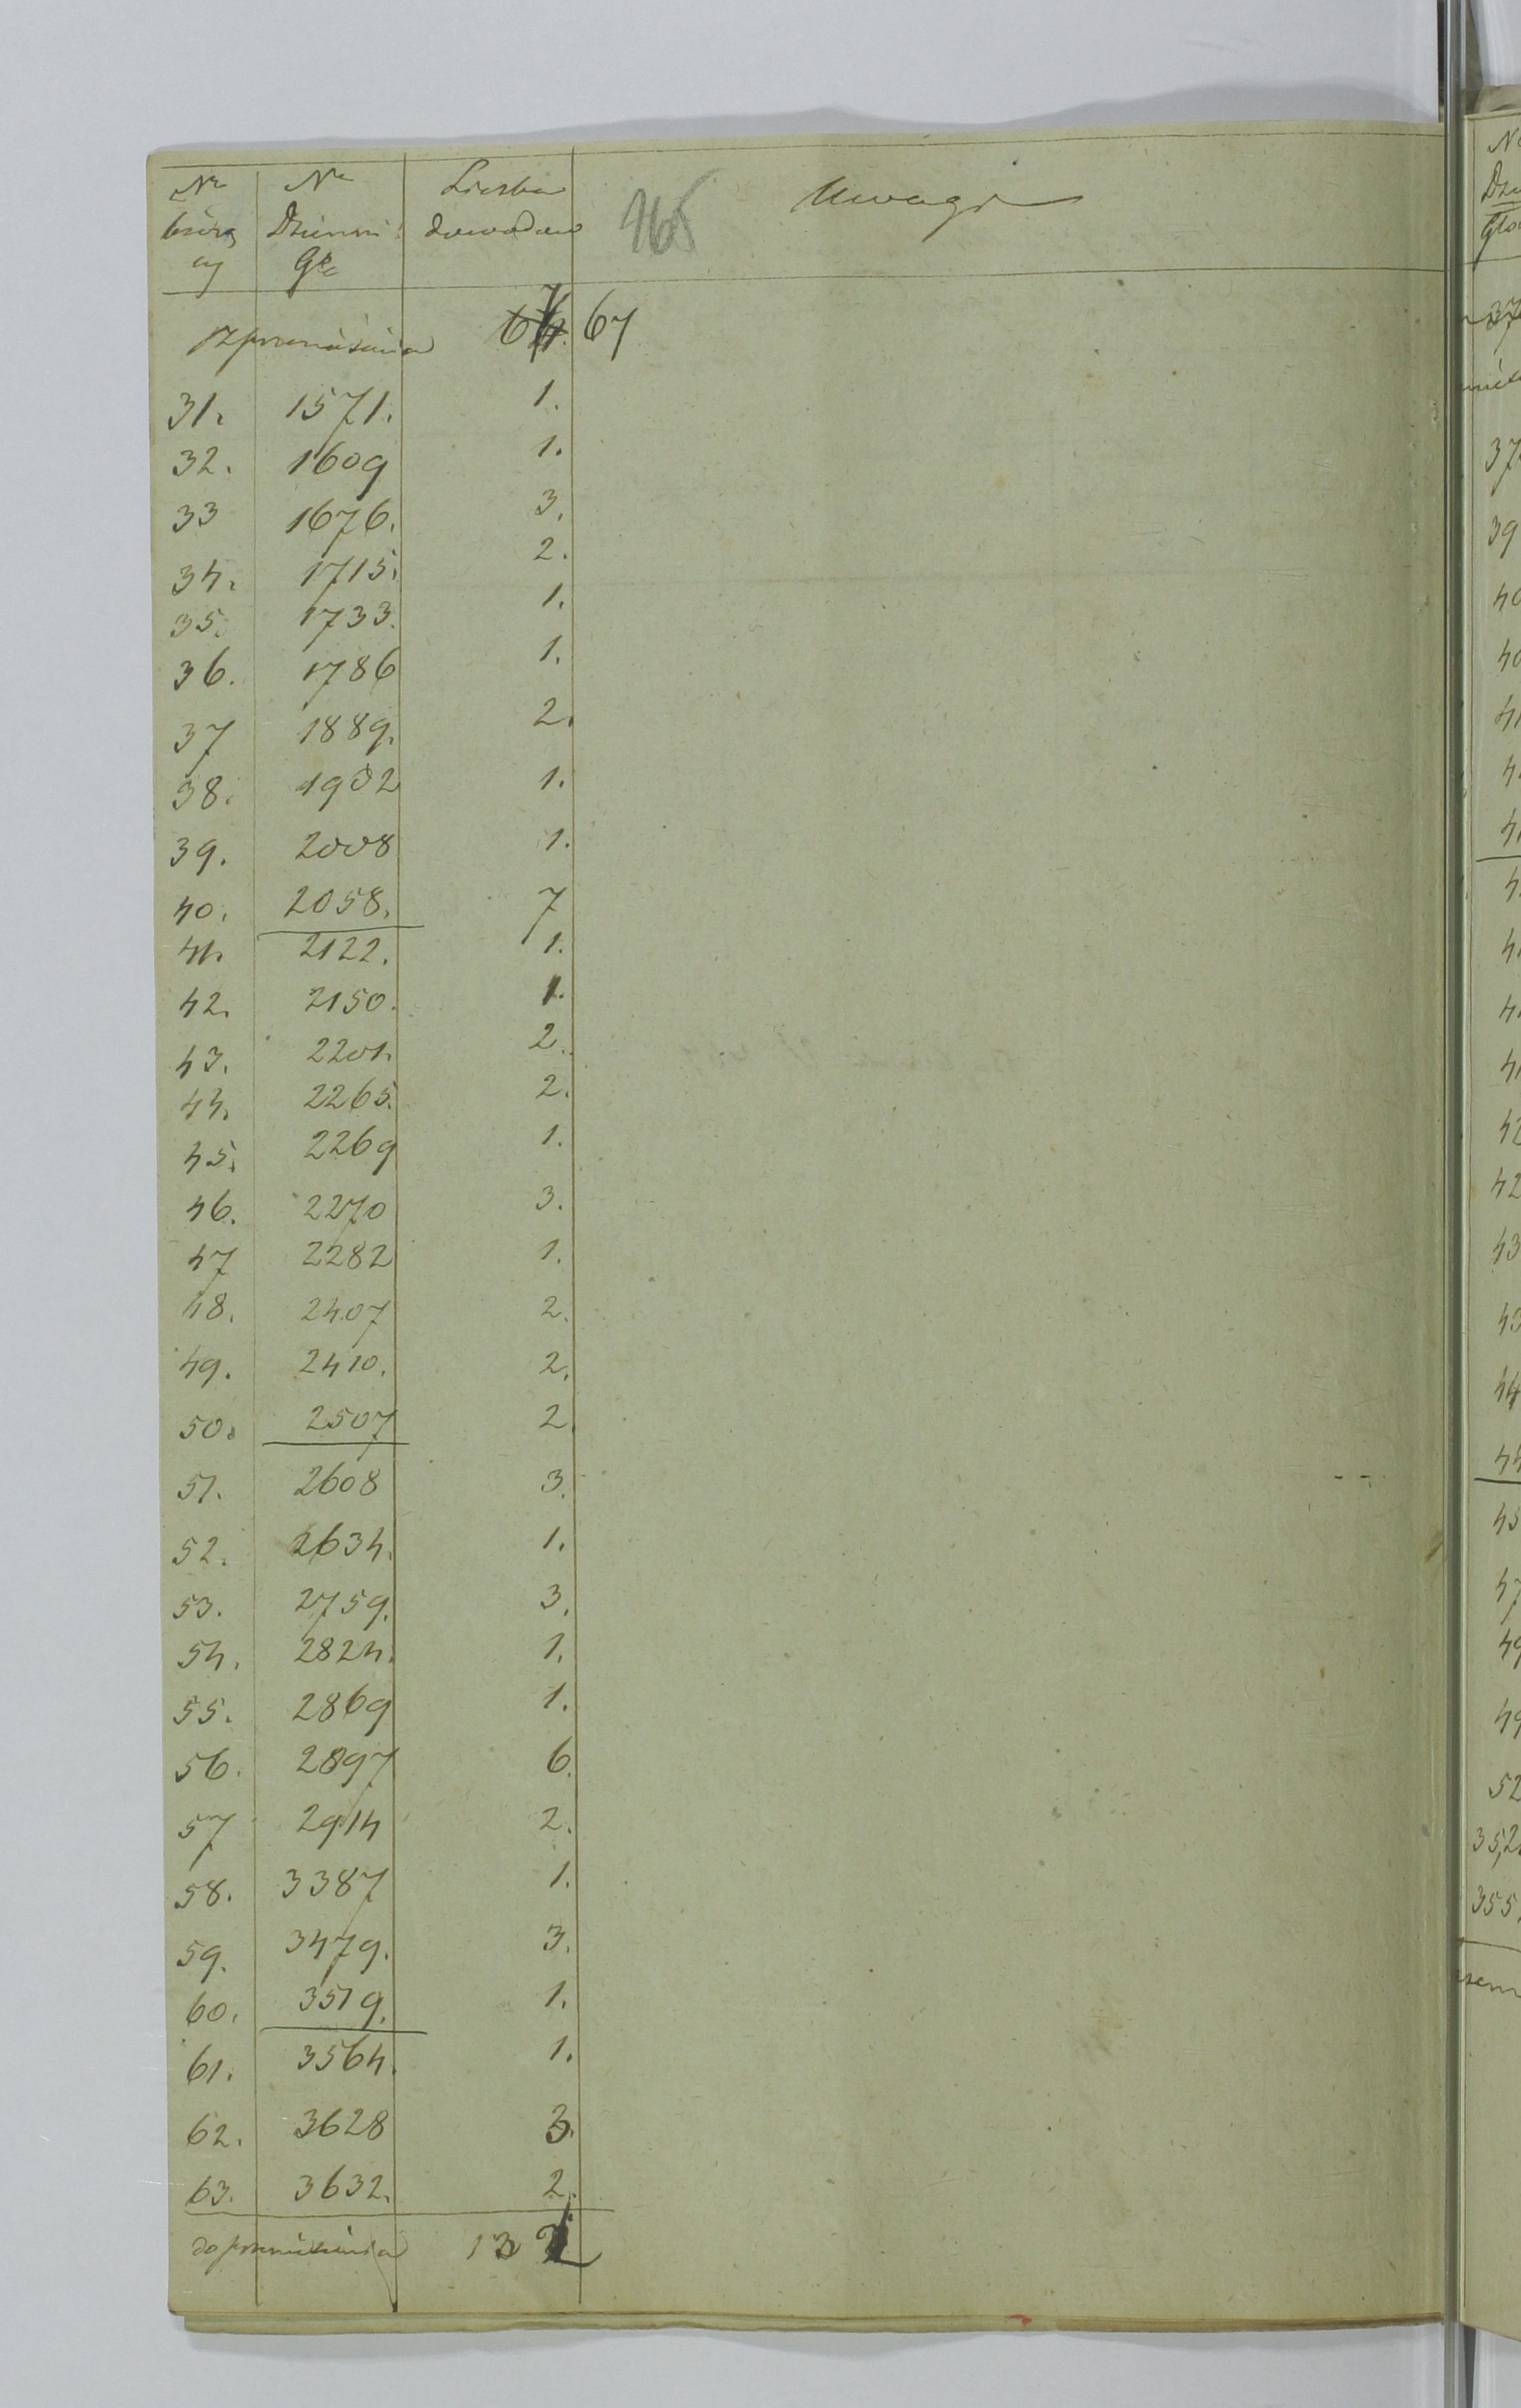 Nr Nr Liczba Uwagi
bieżą Dzienni dowodów 165
cy Gł.
Z przeniesienia 64 67
31. 1571. 1.
32. 1609 1.
33 1676. 3.
34. 1715. 2.
35. 1733. 1.
36. 1786 1.
37 1889. 2.
38. 1902 1.
39. 2008 1.
40. 2058. 7
41. 2122. 1.
42. 2150. 1.
43. 2201. 2.
44. 2265. 2.
45. 2269 1.
46. 2270 3.
47 2282 1.
48. 2407 2.
49. 2410. 2.
50. 2507 2.
51. 2608 3.
52. 2634. 1.
53. 2759. 3.
54. 2824. 1.
55. 2869 1.
56. 2897 6.
57 2914 2.
58. 3387 1.
59. 3479. 3.
60. 3519. 1.
61. 3564. 1.
62. 3628 3.
63. 3632. 2.
do przeniesienia